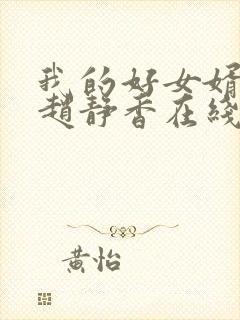 我的好女婿
趙靜香在綫
黃怡